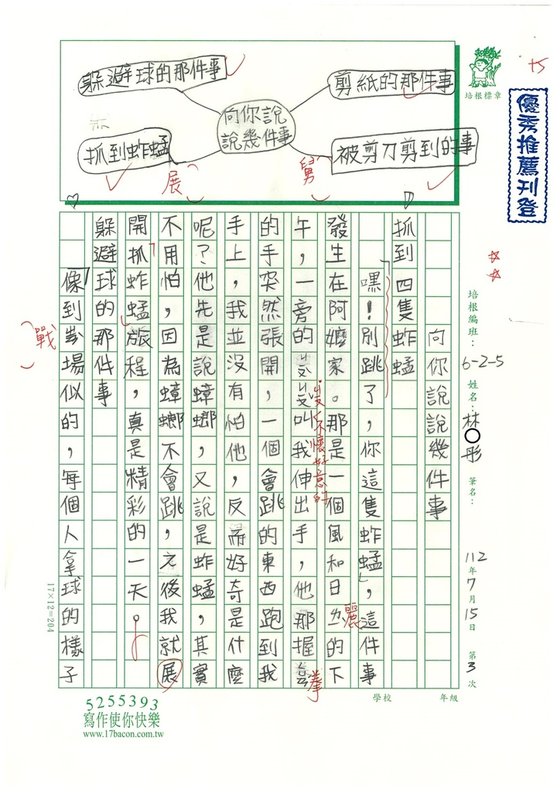 躲避球的那件事
剪紙的那件事
向你說
說幾件事
抓到蚱蜢
被剪刀剪到的事
培根標章
優秀推薦刊登
培根編班：6-2-5 姓名：林〇彤 筆名：
112年7月15日 第3次
年級
學校
向你說說幾件事
抓到四隻蚱蜢
「嘿！別跳了，你這隻蚱蜢」，這件事
發生在阿嬤家。那是一個風和日ㄌ的下
麗
午，一旁的ㄐㄡㄐㄡ叫我伸出手，他那握
舅
不懷好意的
拳
的手突然張開，一個會跳的東西跑到我
手上，我並沒有怕他，反而好奇是什麼
呢？他先是說蟑螂，又說是蚱蜢，其實
不用怕，因為蟑螂不會跳，之後我就展
展
開「抓蚱蜢」旅程，真是精彩的一天。
躲避球的那件事
像到ㄓㄢ場似的，每個人拿球的樣子
戰
17×12=204
5255393
寫作使你快樂
www.17bacon.com.tw